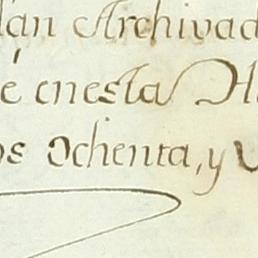 lán Archivad
é enesta Ha
os Ochenta, y V